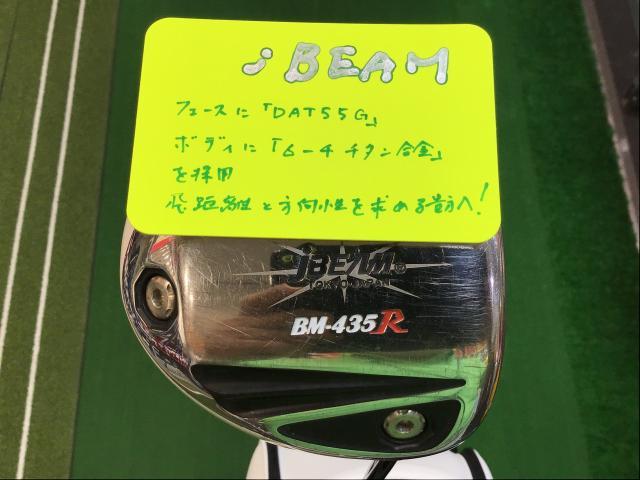 JBEAM
フェースに「DAT55G」
ボディに「6-4チタン合金」
を採用
飛距離と方向性を求める貴方へ!
JBEAM®
TOKYO JAPAN
BM-435R